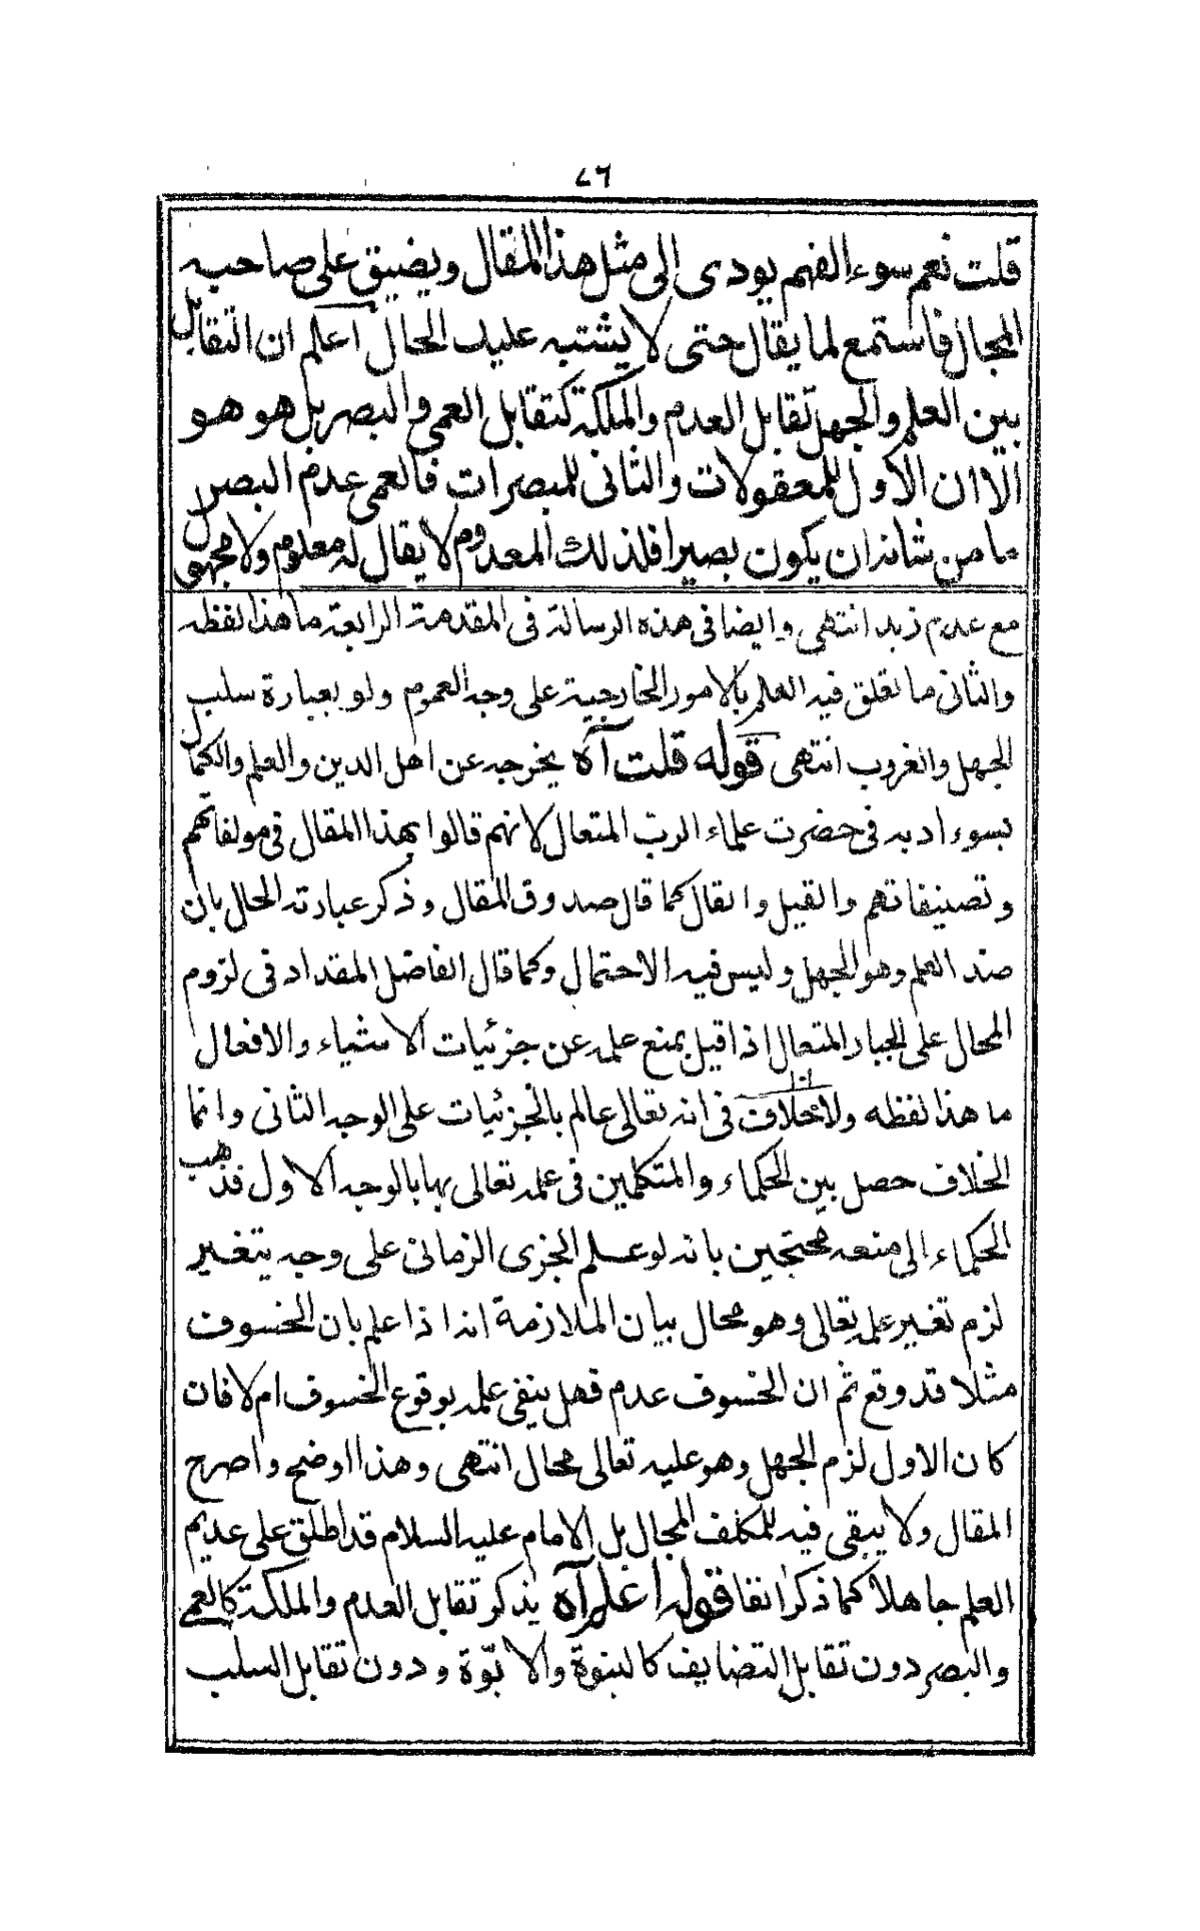 ٧٦
قلت نعم سوء الفهم يودى الى مثل هذا المقال ويضيق على صاحبه
المجال فاستمع لما يقال حتى لا يشتبه عليك الحال اعلم ان التقابل
بين العلم والجهل تقابل العدم والملكة كتقابل العمى والبصر بل هو هو
الّا ان الاول للمعقولات والثانى للمبصرات فالعمى عدم البصر
ما من شانه ان يكون بصيرا فلذلك المعدوم لا يقال له معلوم ولا مجهول
مع عدم زيد انتهى وايضا فى هذه الرسالة فى المقدمة الرابعة ما هذا لفظه
والثانى ما تعلق فيه العلم بالامور الخارجية على وجه العموم ولو بعبارة سلب
الجهل والغروب انتهى قوله قلت آه يخرجه عن اهل الدين والعلم والكمال
بسوء ادبه فى حضرت علماء الربّ المتعال لانهم قالوا بهذا المقال فى مولفاتهم
وتصنيفاتهم والقيل والقال كما قال صدوق المقال وذكر عبارته الحال بان
ضد العلم وهو الجهل وليس فيه الاحتمال وكما قال الفاضل المقداد فى لزوم
المحال على الجبار المتعال اذا قيل بمنع علمه عن جزئيات الاشياء والافعال
ما هذا لفظه ولا خلاف فى انه تعالى عالم بالجزئيات على الوجه الثانى وانما
الخلاف حصل بين الحكماء والمتكلمين فى علمه تعالى بها بالوجه الاول فذهب
الحكماء الى منعه محتجين بانه لو علم الجزى الزمانى على وجه يتغير
لزم تغير علمه تعالى وهو محال بيان الملازمة انه اذا علم بان الخسوف
مثلا قد وقع ثم ان الخسوف عدم فهل ينفى علمه بوقوع الخسوف ام لا فان
كان الاول لزم الجهل وهو عليه تعالى محال انتهى وهذا اوضح واصرح
المقال ولا يبقى فيه للمكلف المجال بل الامام عليه السلام قد اطلق على عديم
العلم جاهلا كما ذكر انفا قوله اعلم آه يذكر تقابل العدم والملكة كالعمى
والبصر دون تقابل التضايف كالبنوة والابوّة ودون تقابل السلب